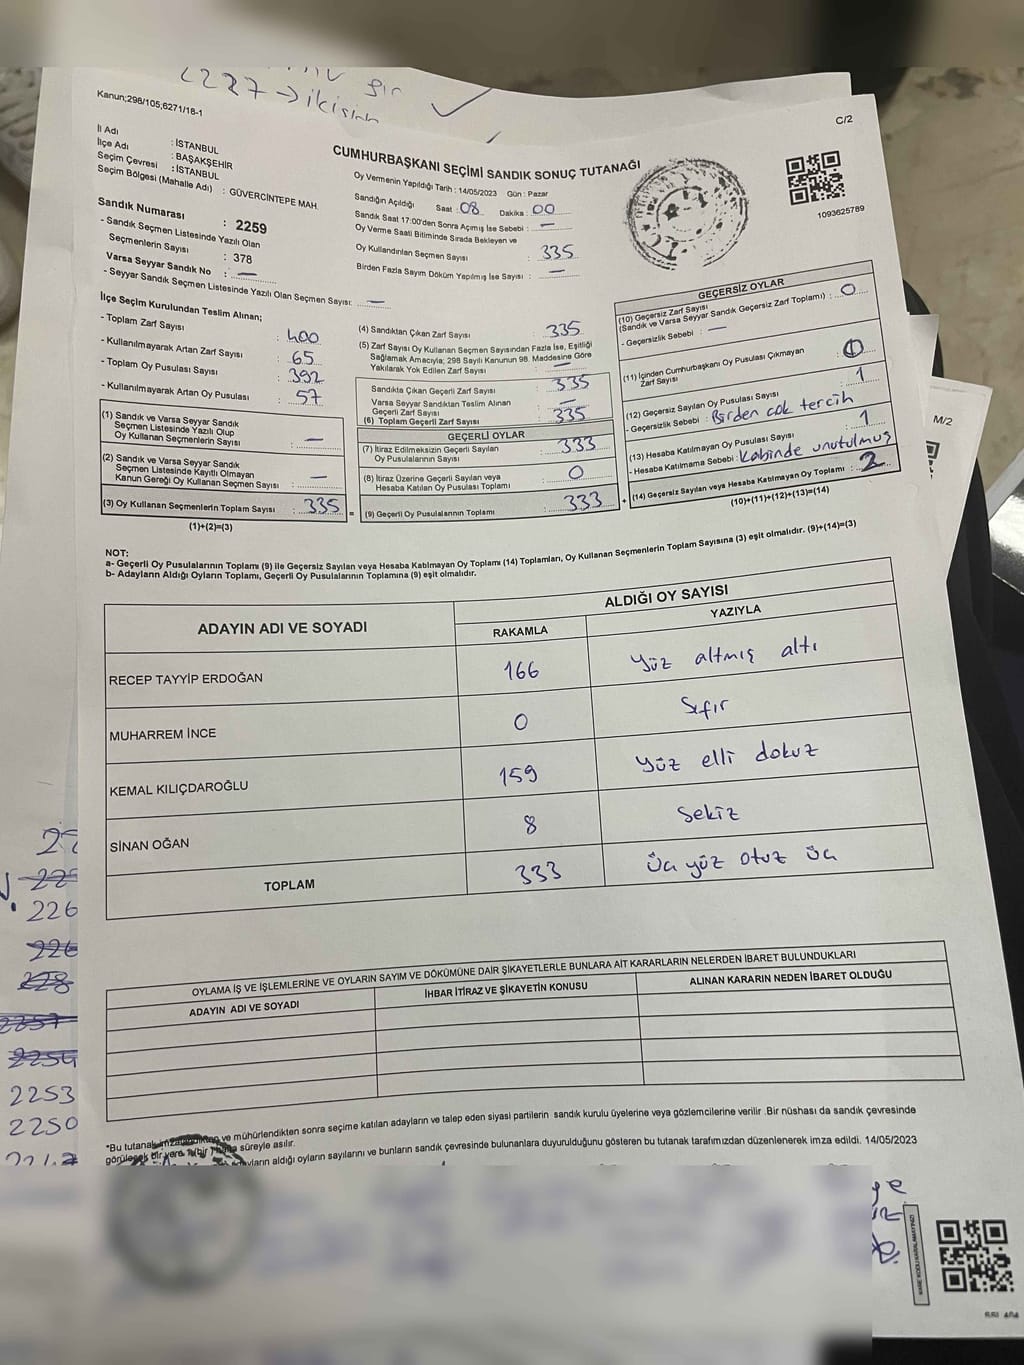 2227 → ikisinin
Kanun;298/105;6271/18-1
C/2
İl Adı : İSTANBUL
İlçe Adı : BAŞAKŞEHİR
Seçim Çevresi : İSTANBUL
Seçim Bölgesi (Mahalle Adı) : GÜVERCİNTEPE MAH.
CUMHURBAŞKANI SEÇİMİ SANDIK SONUÇ TUTANAĞI
Oy Vermenin Yapıldığı Tarih : 14/05/2023 Gün : Pazar
Sandığın Açıldığı Saat : 08 Dakika : 00
Sandık Saat 17:00'den Sonra Açımış İse Sebebi : —
Oy Verme Saati Bitiminde Sırada Bekleyen ve
Oy Kullandırılan Seçmen Sayısı : 335
Birden Fazla Sayım Döküm Yapılmış İse Sayısı : —
1093625789
Sandık Numarası : 2259
- Sandık Seçmen Listesinde Yazılı Olan
Seçmenlerin Sayısı : 378
Varsa Seyyar Sandık No : —
- Seyyar Sandık Seçmen Listesinde Yazılı Olan Seçmen Sayısı: —
İlçe Seçim Kurulundan Teslim Alınan;
- Toplam Zarf Sayısı : 400
- Kullanılmayarak Artan Zarf Sayısı : 65
- Toplam Oy Pusulası Sayısı : 392
- Kullanılmayarak Artan Oy Pusulası : 57
(1) Sandık ve Varsa Seyyar Sandık
Seçmen Listesinde Yazılı Olup
Oy Kullanan Seçmenlerin Sayısı : —
(2) Sandık ve Varsa Seyyar Sandık
Seçmen Listesinde Kayıtlı Olmayan
Kanun Gereği Oy Kullanan Seçmen Sayısı : —
(3) Oy Kullanan Seçmenlerin Toplam Sayısı : 335 =
(1)+(2)=(3)
(4) Sandıktan Çıkan Zarf Sayısı : 335
(5) Zarf Sayısı Oy Kullanan Seçmen Sayısından Fazla İse, Eşitliği
Sağlamak Amacıyla; 298 Sayılı Kanunun 98. Maddesine Göre
Yakılarak Yok Edilen Zarf Sayısı : —
Sandıkta Çıkan Geçerli Zarf Sayısı : 335
Varsa Seyyar Sandıktan Teslim Alınan
Geçerli Zarf Sayısı : —
(6) Toplam Geçerli Zarf Sayısı : 335
GEÇERLİ OYLAR
(7) İtiraz Edilmeksizin Geçerli Sayılan
Oy Pusulalarının Sayısı : 333
(8) İtiraz Üzerine Geçerli Sayılan ve
Hesaba Katılan Oy Pusulası Toplamı : 0
(9) Geçerli Oy Pusulalarının Toplamı : 333 +
GEÇERSİZ OYLAR
(10) Geçersiz Zarf Sayısı
(Sandık ve Varsa Seyyar Sandık Geçersiz Zarf Toplamı) : 0
- Geçersizlik Sebebi : —
(11) İçinden Cumhurbaşkanı Oy Pusulası Çıkmayan
Zarf Sayısı :
(12) Geçersiz Sayılan Oy Pusulası Sayısı : 1
- Geçersizlik Sebebi : Birden çok tercih
(13) Hesaba Katılmayan Oy Pusulası Sayısı : 1
- Hesaba Katılmama Sebebi : Kabinde unutulmuş
(14) Geçersiz Sayılan veya Hesaba Katılmayan Oy Toplamı : 2
(10)+(11)+(12)+(13)=(14)
NOT:
a- Geçerli Oy Pusulalarının Toplamı (9) ile Geçersiz Sayılan veya Hesaba Katılmayan Oy Toplamı (14) Toplamları, Oy Kullanan Seçmenlerin Toplam Sayısına (3) eşit olmalıdır. (9)+(14)=(3)
b- Adayların Aldığı Oyların Toplamı, Geçerli Oy Pusulalarının Toplamına (9) eşit olmalıdır.
ADAYIN ADI VE SOYADI ALDIĞI OY SAYISI
RAKAMLA YAZIYLA
RECEP TAYYİP ERDOĞAN 166 Yüz altmış altı
MUHARREM İNCE 0 Sıfır
KEMAL KILIÇDAROĞLU 159 Yüz elli dokuz
SİNAN OĞAN 8 Sekiz
TOPLAM 333 Üç yüz otuz üç
OYLAMA İŞ VE İŞLEMLERİNE VE OYLARIN SAYIM VE DÖKÜMÜNE DAİR ŞİKAYETLERLE BUNLARA AİT KARARLARIN NELERDEN İBARET BULUNDUKLARI
ADAYIN ADI VE SOYADI İHBAR İTİRAZ VE ŞİKAYETİN KONUSU ALINAN KARARIN NEDEN İBARET OLDUĞU
*Bu tutanak ve mühürlendikten sonra seçime katılan adayların ve talep eden siyasi partilerin sandık kurulu üyelerine veya gözlemcilerine verilir .Bir nüshası da sandık çevresinde
görülecek bir yere 1 (bir) hafta süreyle asılır.
aldığı oyların sayılarını ve bunların sandık çevresinde bulunanlara duyurulduğunu gösteren bu tutanak tarafımızdan düzenlenerek imza edildi. 14/05/2023
M/2
226
226
228
2257
2254
2253
2250